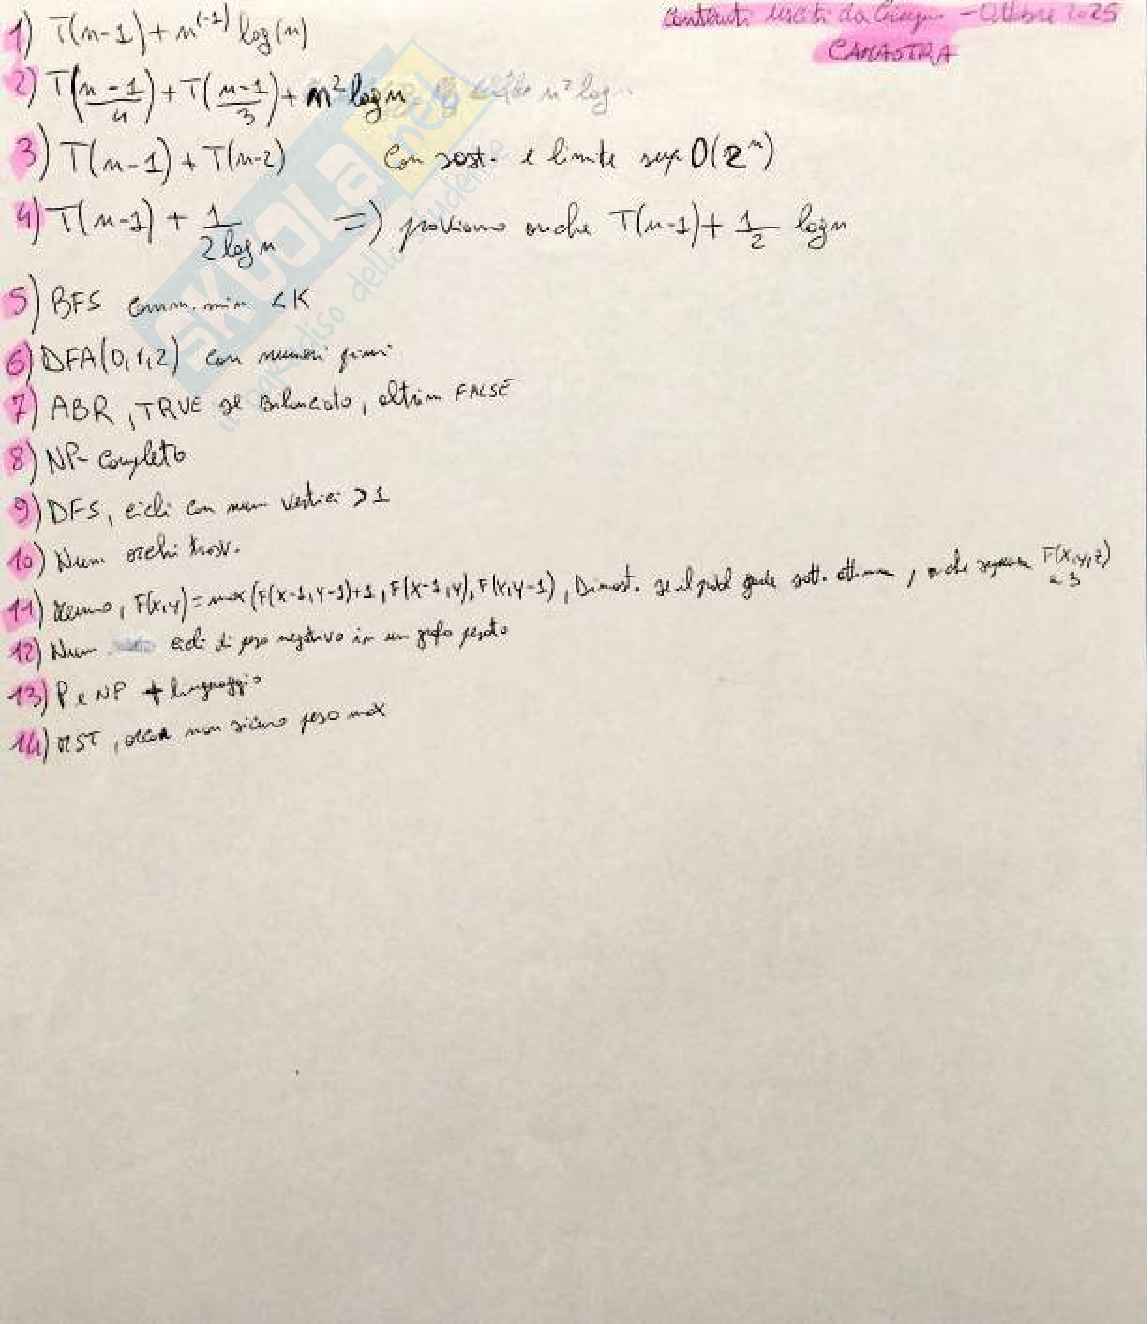 Contenuti usciti da Giugno - Ottobre 2025
CANASTRA
1) T(n-1) + n^(-1) log(n)
2) T(n-1/4) + T(n-1/3) + n² log n n² log n
3) T(n-1) + T(n-2) Con sost. e limite sup O(2^n)
4) T(n-1) + 1/2 log n => proviamo anche T(n-1) + 1/2 log n
5) BFS comm. min < K
6) DFA(0,1,2) con numeri primi
7) ABR, TRUE se bilanciato, altrim FALSE
8) NP-Completo
9) DFS, cicli con num vertici > 1
10) Num archi trasv.
11) F(x,y) = max(F(x-1,y-1)+1, F(x-1,y), F(x,y-1)), Dimost. se il prob gode sott. ottima, F(x,y,z) a 3
12) Num cicli di peso negativo in un grafo pesato
13) P e NP + linguaggio
14) MST, arco non sicuro peso max
SKUOLA.net